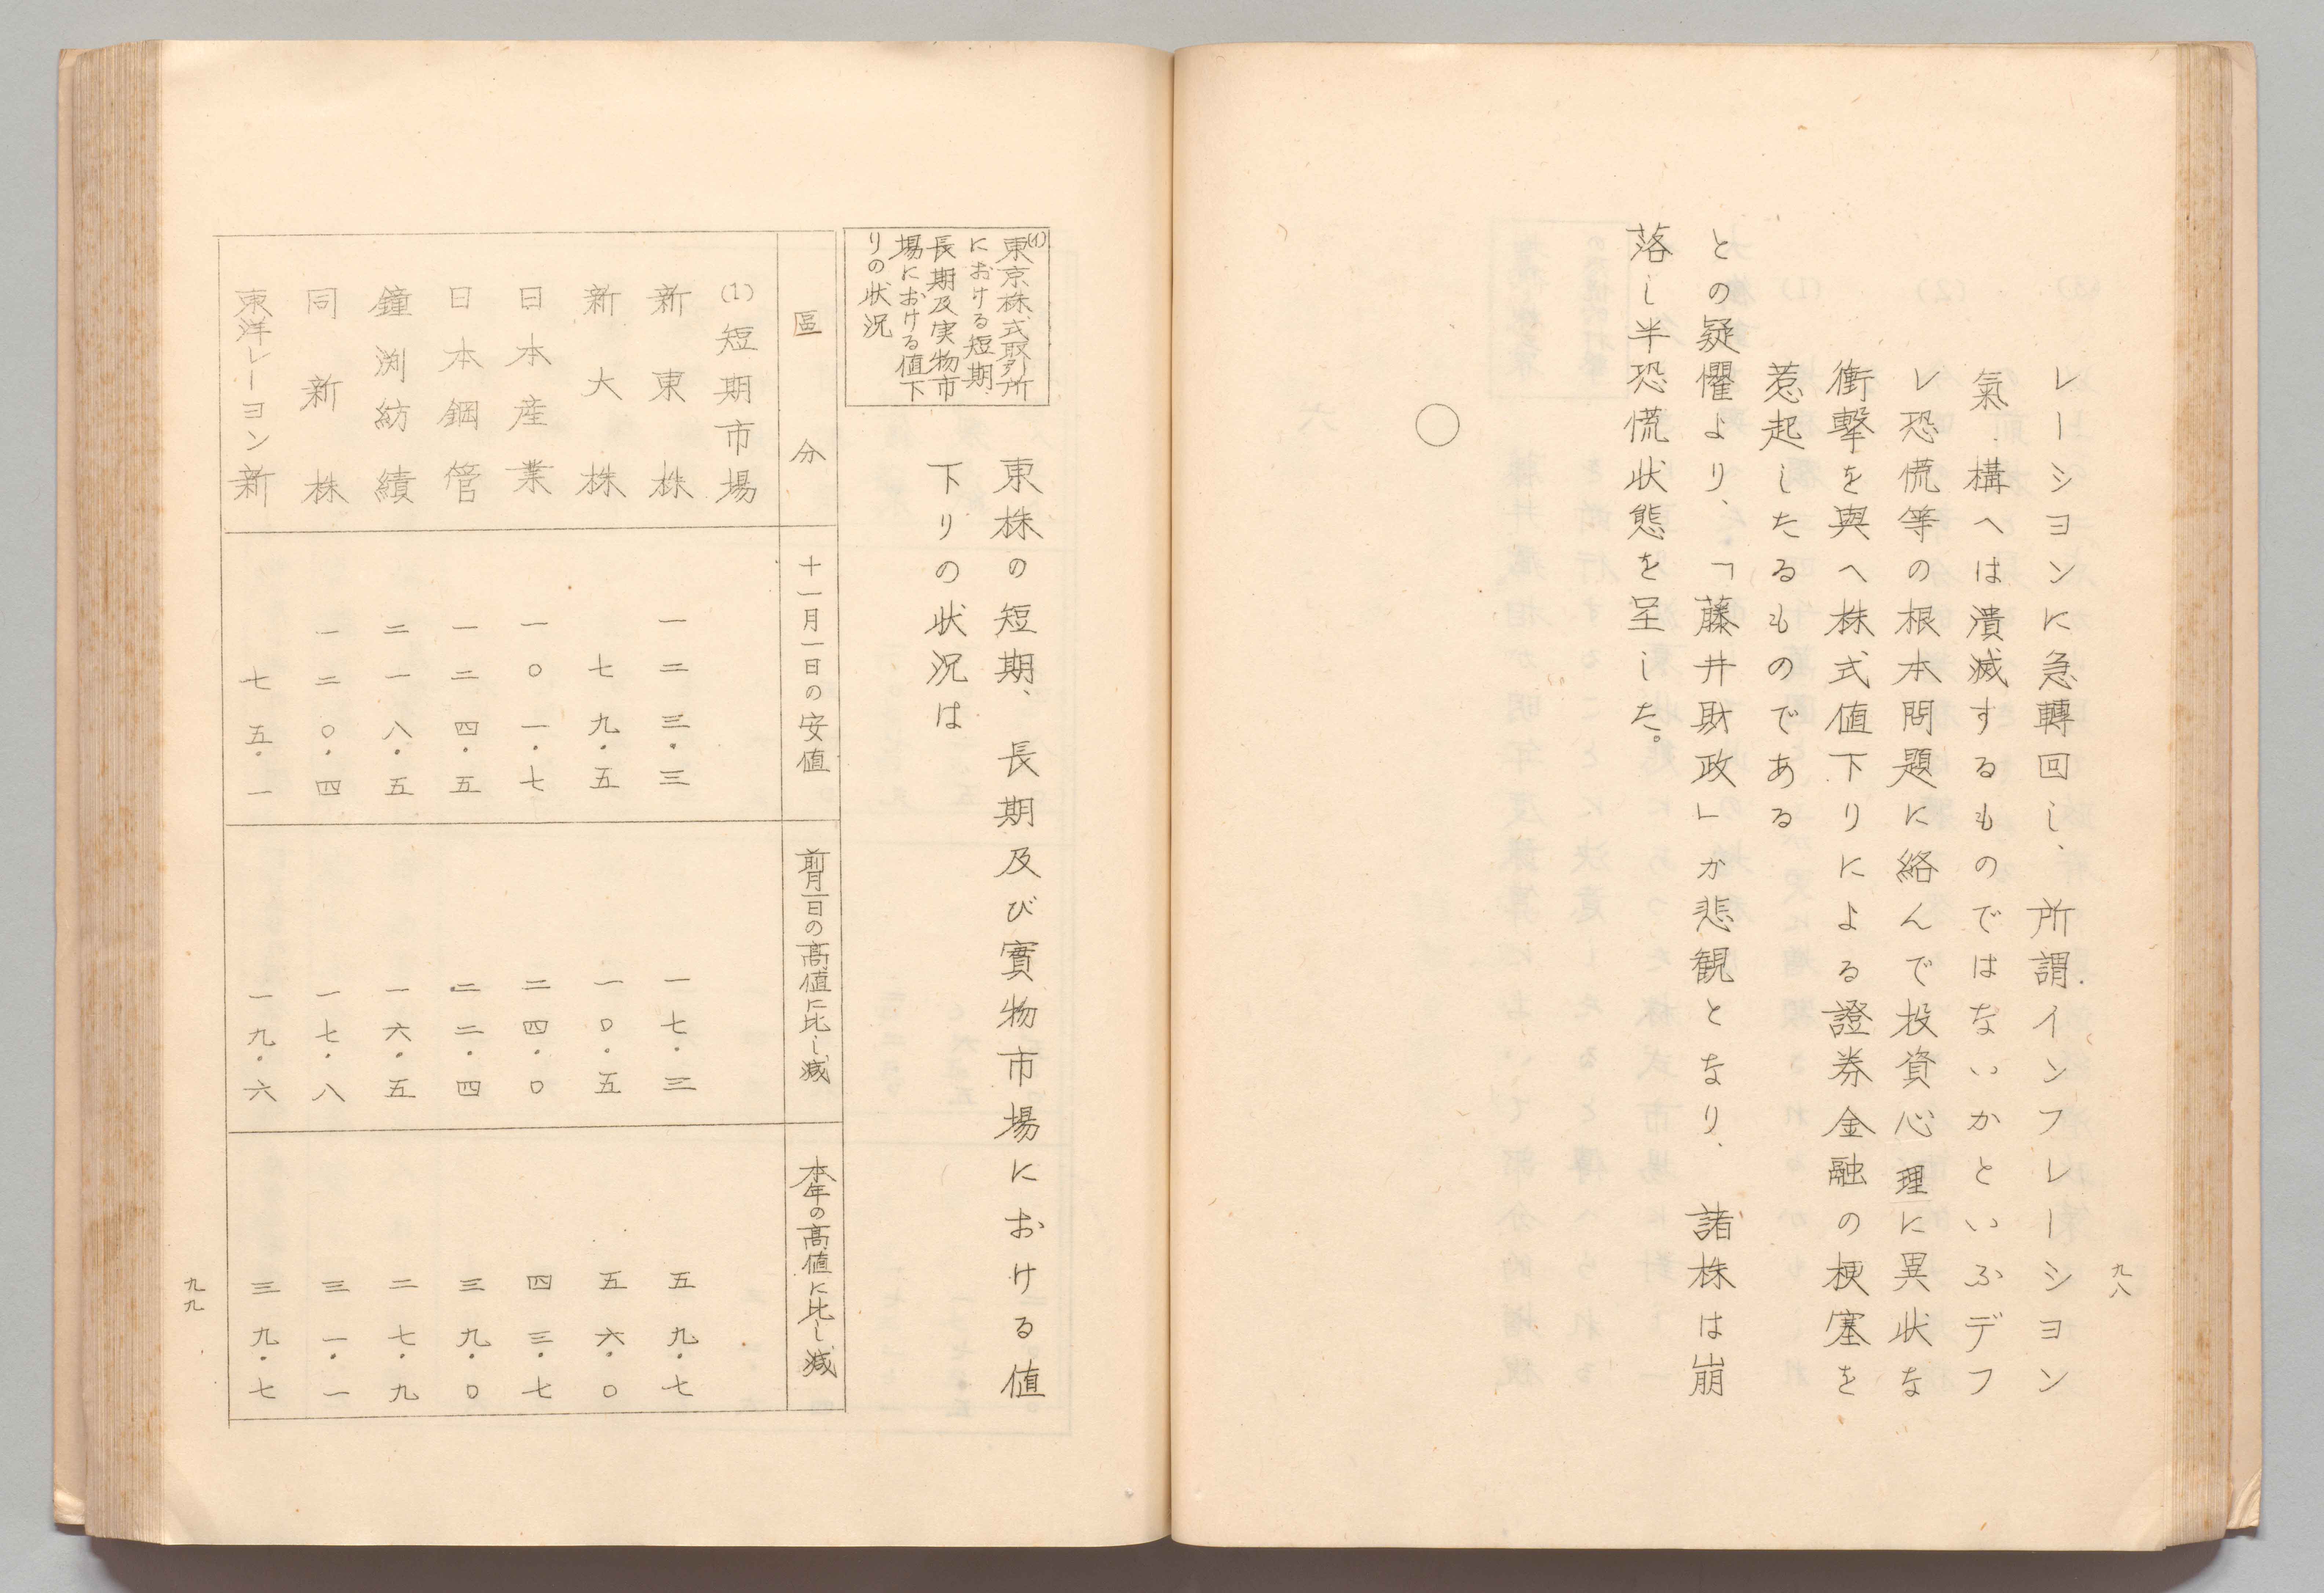 九八
レーシヨンに急轉回し、所謂インフレーシヨン
氣構へは潰滅するものではないかといふデフ
レ恐慌等の根本問題に絡んで投資心理に異状な
衝撃を與へ株式値下りによる證券金融の梗塞を
惹起したるものである
との疑懼より、「藤井財政」か悲観となり、諸株は崩
落し半恐慌状態を呈した。
○
(イ)東京株式取引所
における短期
長期及実物市
場における値下
りの状況
東株の短期、長期及び實物市場における値
下りの状況は
區分 十一月一日の安値 前月一日の高値に比し減 本年の高値に比し減
(1)短期市場
新東株 一二三・三 一七・三 五九・七
新大株 七九・五 一〇・五 五六・〇
日本産業 一〇一・七 二四・〇 四三・七
日本鋼管 一二四・五 二二・四 三九・〇
鐘渕紡績 二一八・五 一六・五 二七・九
同新株 一二〇・四 一七・八 三一・一
東洋レーヨン新 七五・一 一九・六 三九・七
九九